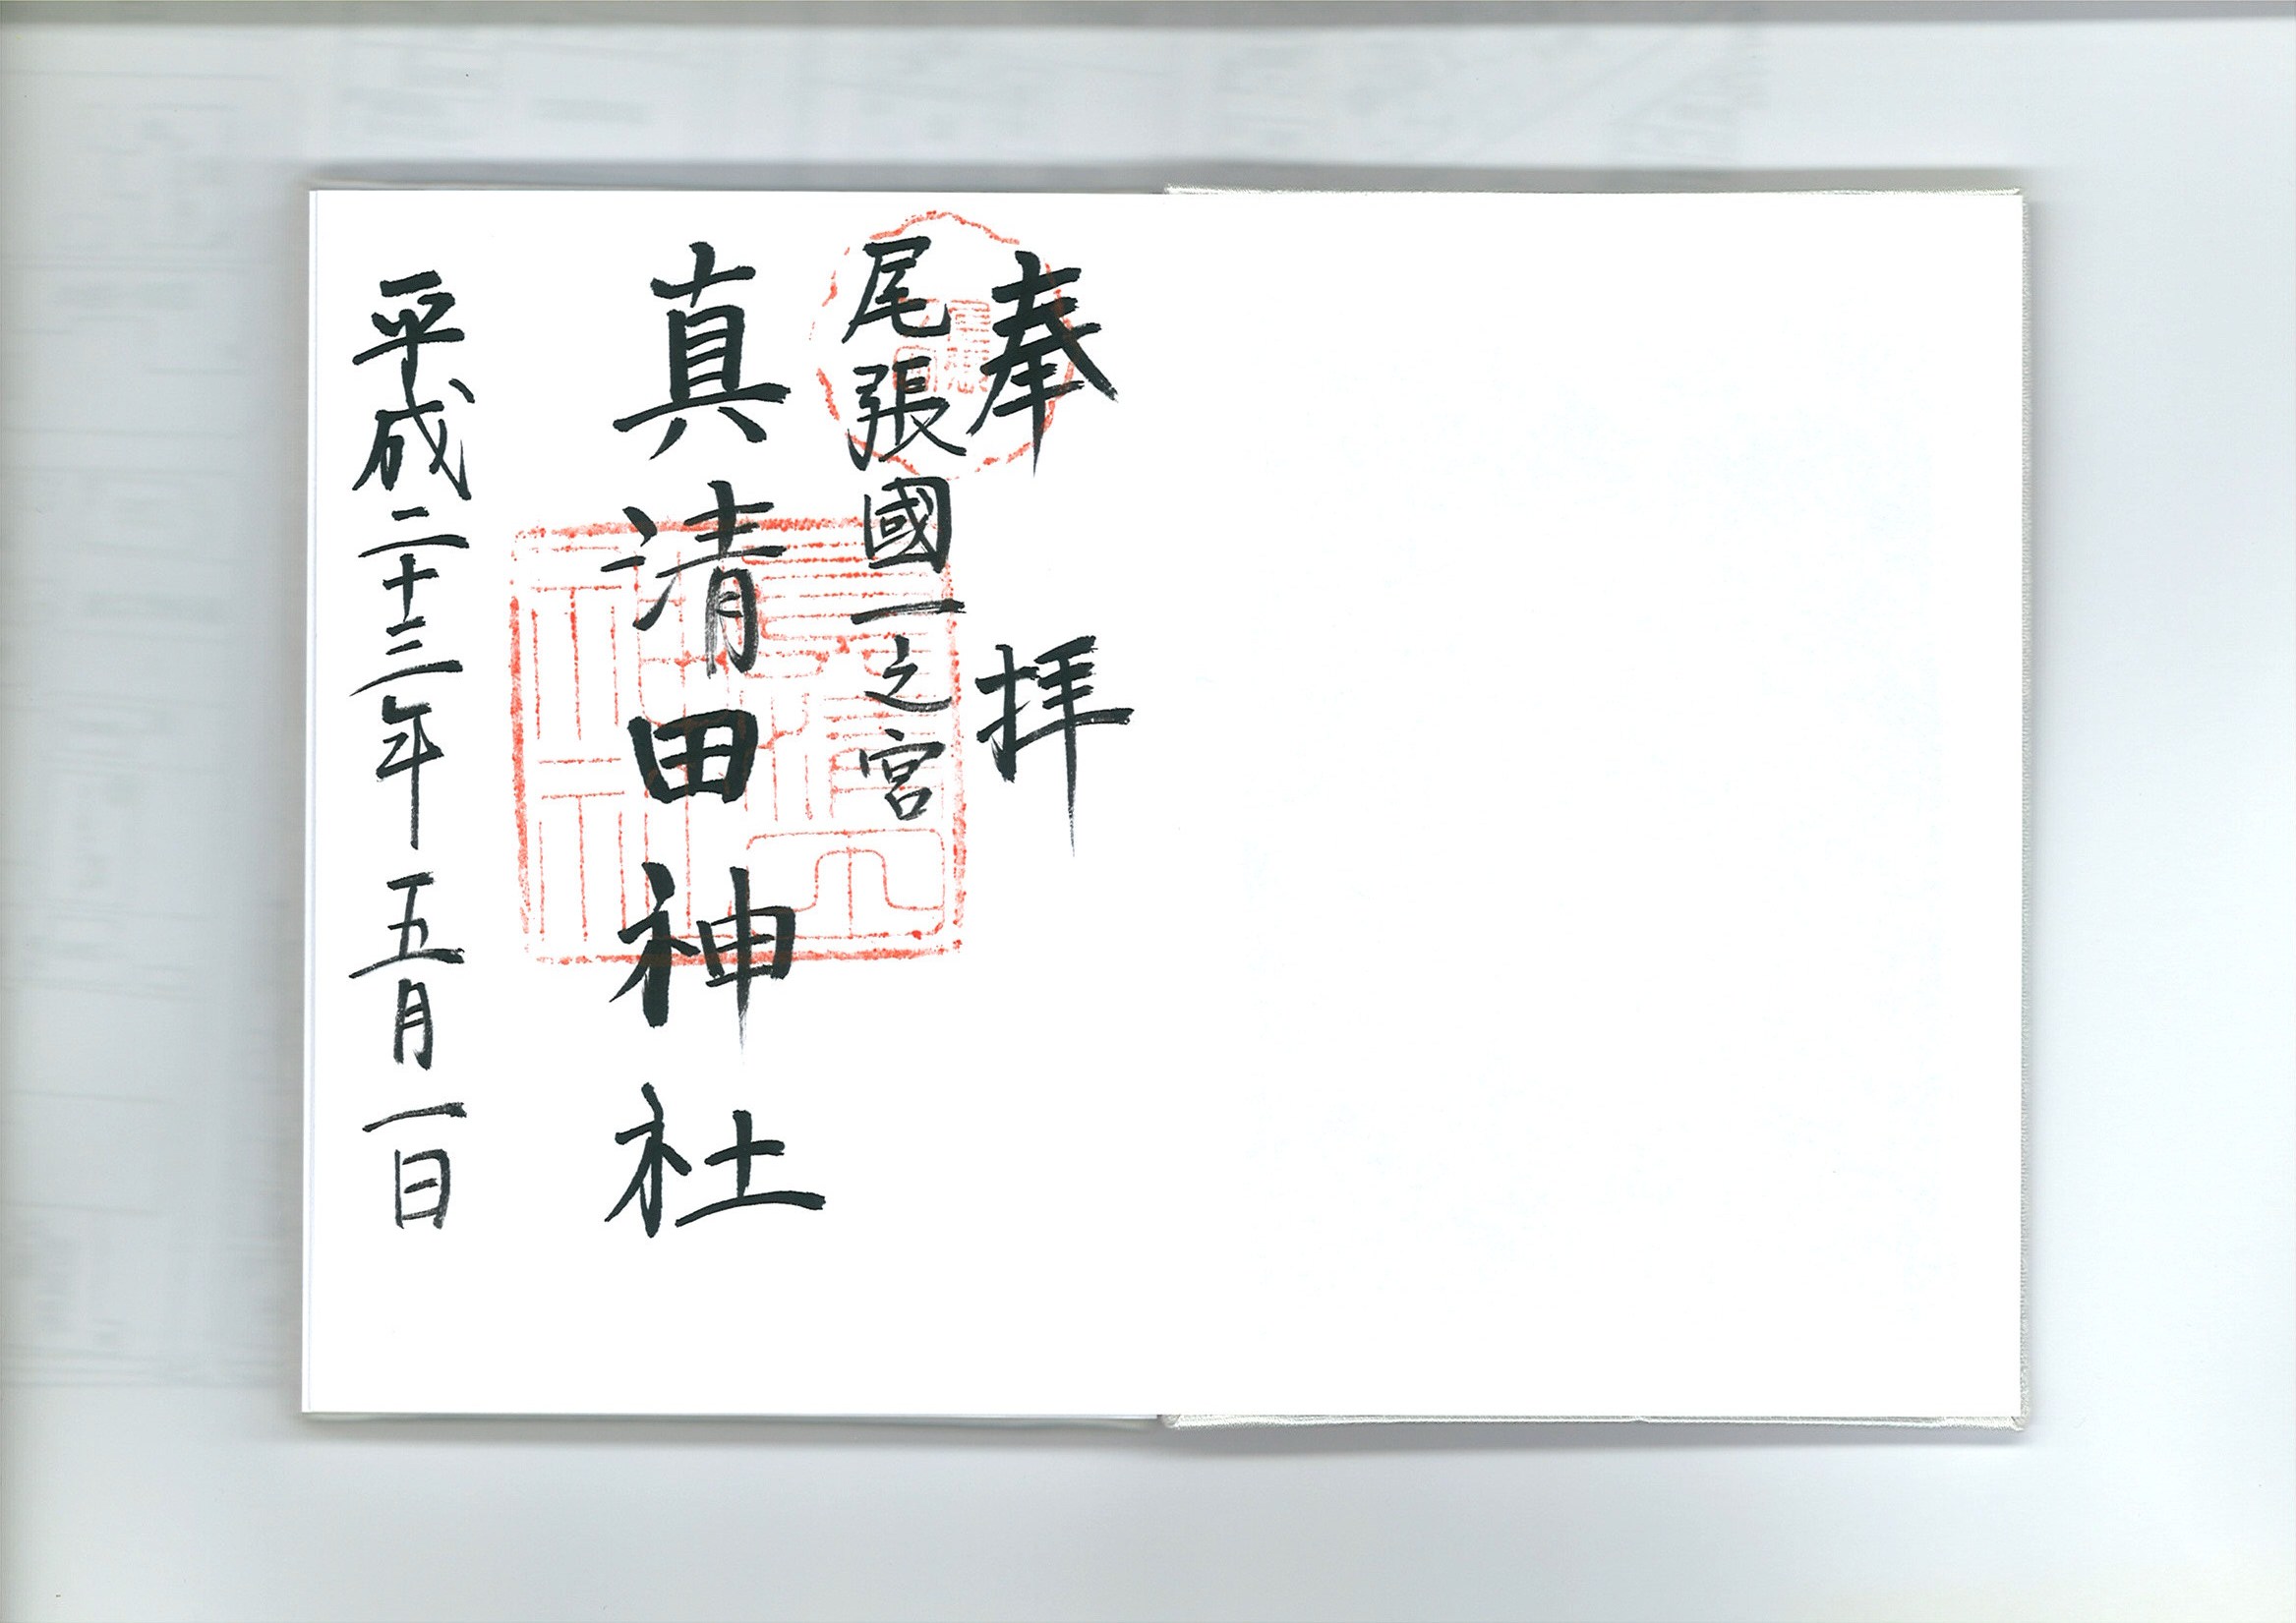 奉拝
尾張國一之宮
真清田神社
平成二十三年五月一日